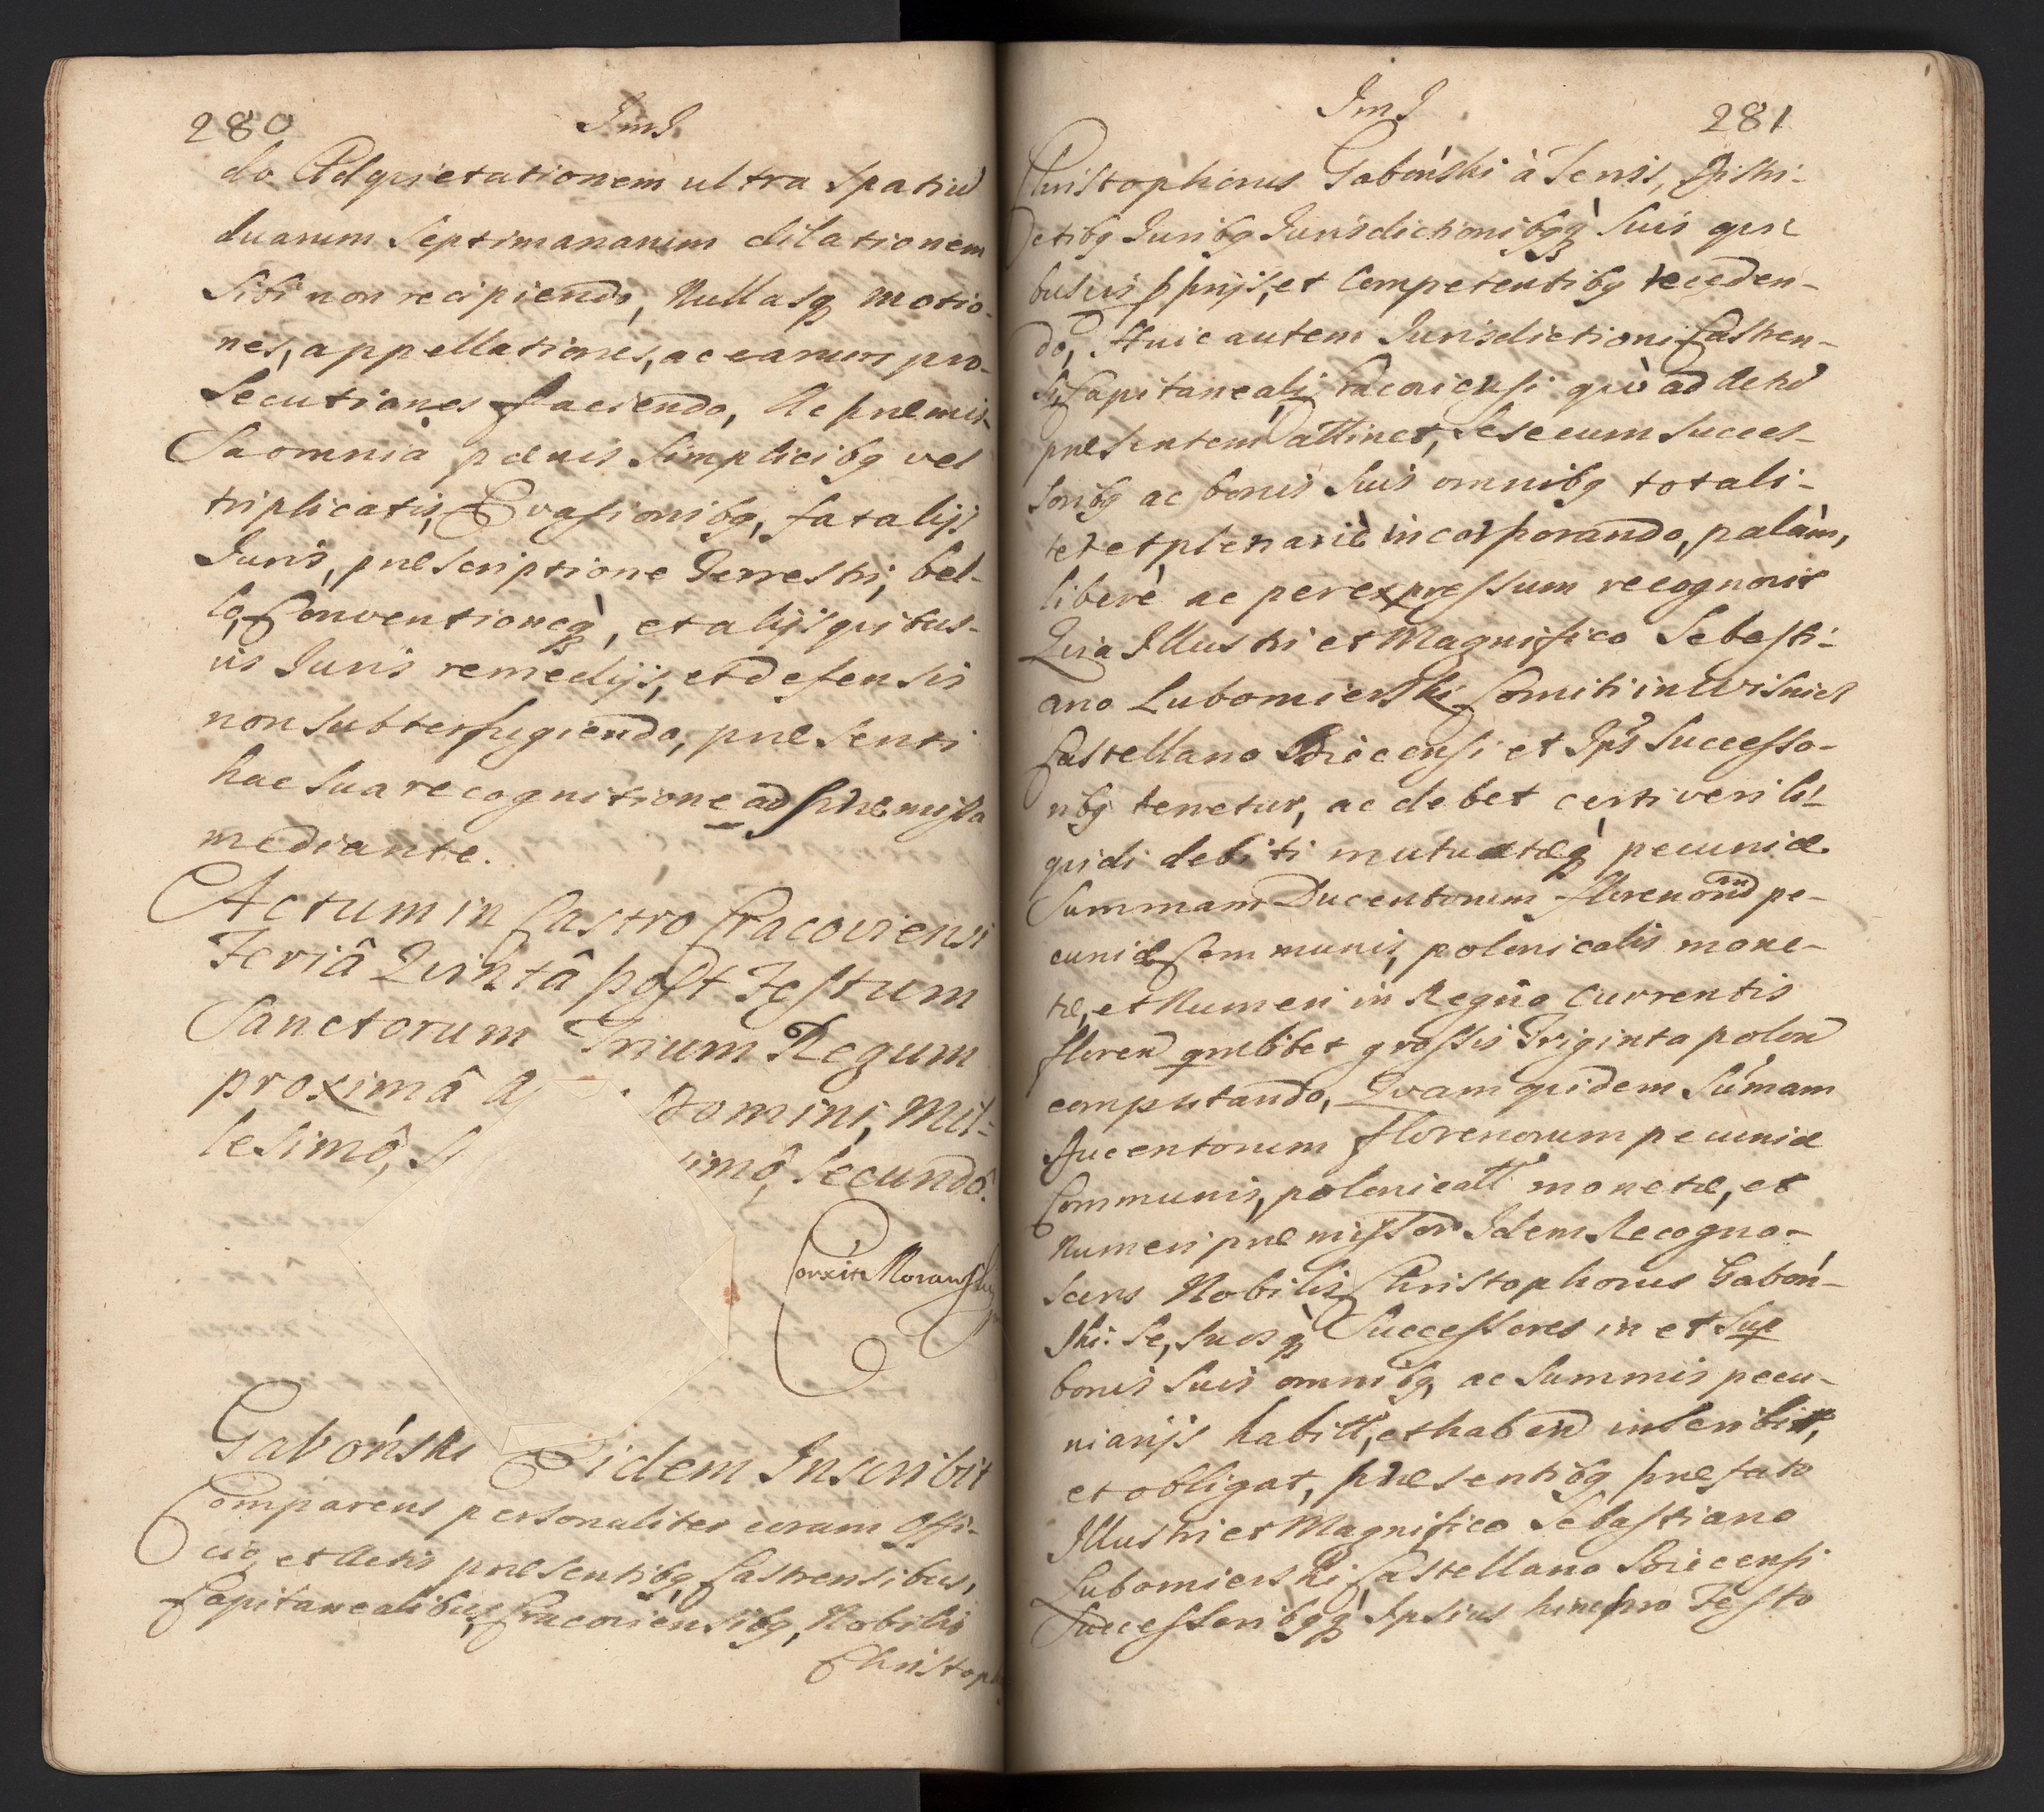 280
do Adquietationem ultra spatiũ
duarum Septimanarum dilationem
sibi non recipiendo, Nullasq motio-
nes, appellationes, ac earum pro-
secutiones faciendo, Ac præmis-
sa omnia pænis simplicibq vel
triplicatis, Evasionibq, fatalijs
Juris, præscriptione Terrestri, bel-
lo, Conventioneq̀, et alijs quibus-
vis Juris remedijs, et defensis
non subterfugiendo, præsenti
hac sua recognitione ad præmissa
mediante.
Actum in Castro Cracoviensi
Feriâ Qvintâ post Festum
Sanctorum Trium Regum
proximâ A Domini, Mil=
lesimô, S imô, secundô.
Gaboński Eidem Inscribit
Comparens personaliter coram Offi-
cio, et Actis præsentibq Castrensibus,
Capitanealibus, Cracoviensibq, Nobilis
Christop
281
Christophorus Gaboński à Terris, Distri-
ctibq Juribq Jurisdictionibqq̀ suis qui
busvis pprijs, et Competentibq receden-
do, Huic autem Jurisdictioni Castren-
si, Capitaneali Cracoviensi quò ad Actũ
præsentem attinet, sese cum succes-
soribq ac bonis suis omnibq totali-
ter et plenariè incorporando, palàm,
liberè ac per expressum recognovit
Quia Illustri et Magnifico Sebasti-
ano Lubomierski Comiti in Wisnicz
Castellano Biecensi et Ips̃ Successo-
ribq tenetur, ac debet certi veri li-
quidi debiti mutuatæq̀ pecuniæ
Summam Ducentorum florenorũ pe-
cuniæ Communis, polonicalis mone-
tæ, et Numeri in Regno Currentis
floren̄ qmlibet grossis Triginta polon̄
computando, Qvam quidem Sum̄am
Ducentorum florenorum pecuniæ
Communis, polonicall monetæ, et
Numeri præmissor Idem Recogno-
scens Nobilis Christophorus Gaboń-
ski: Se, suosq̀ Successores in et sup
bonis suis omnibq, ac Summis pecu-
niarijs habitt, et haben̄ inscribit,
et obligat, præsentibq præfato
Illustri et Magnifico Sebastiano
Lubomierski Castellano Biecensi
Successoribqq̀ Ipsius hinc pro Festo